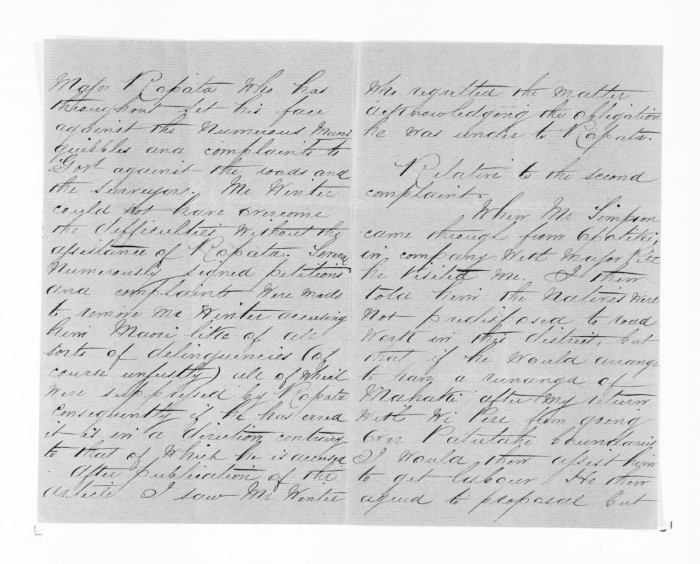 Major Ropata who has
throughout set his face
against the numerous Maori
quibbles and complaints to
Govt against the roads and
the surveyors. Mr Winter
could not have overcome
the difficulties without the
assistance of Ropata. Several
numerously signed petitions
and complaints were made
to remove Mr Winter accusing
him Maori like of all
sorts of delinquencies (of
course unjustly) all of which
were suppressed by Ropata
consequently if he has erred
it is in a direction contrary
to that of which he is accused
After publication of the
article I saw Mr Winter
who regretted the matter
acknowledging the obligation
he was under to Ropata.
Relative to the second
complaint.
When Mr Simpson
came through from Opotiki,
in company with Major
he visited me. I then
told him the Natives were
not predisposed to road
work in this district, but
that if he would arrange
to have a runanga of
Mahaki after my return
with Wi Pere from going
over Patutahi boundaries
I would then assist him
to get labour. He then
agreed to proposal but